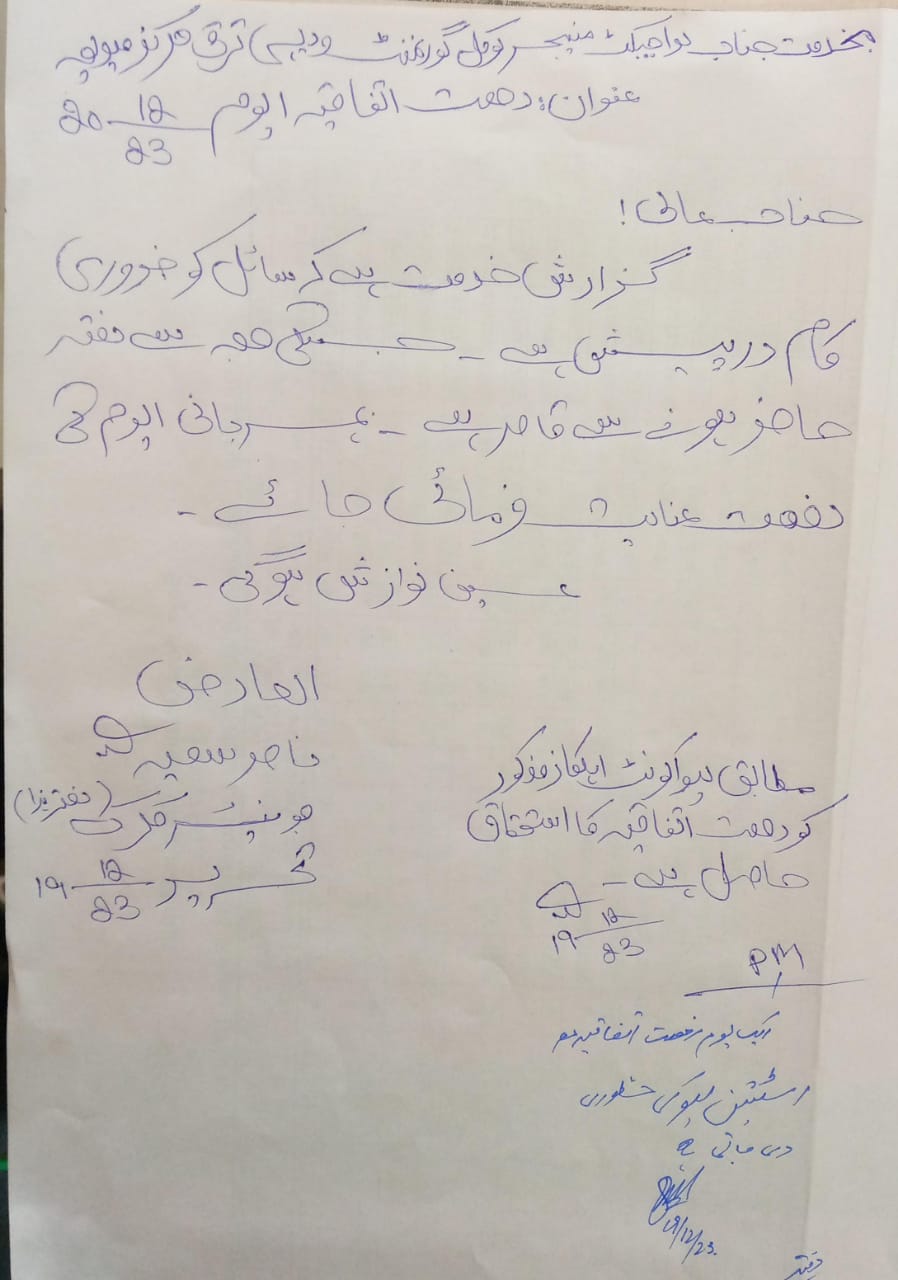 بخدمت جناب پراجیکٹ منیجر لوکل گورنمنٹ و دیہی ترقی مرکز
عنوان: رخصت اتفاقیہ ایوم 20 12/23
جناب عالی!
گزارش خدمت ہے کہ سائل کو ضروری
کام درپیش ہے۔ جسکی وجہ سے دفتر
حاضر ہونے سے قاصر ہے۔ بمہربانی ایوم کی
رخصت عنایت فرمائی جائے۔
عین نوازش ہوگی۔
العارض
ناصر سعید
جونیئر کلرک (دفتر ہذا)
تحریر 19 12/23
مطابق لیو اکونٹ اہلکار مذکور
کو رخصت اتفاقیہ کا استحقاق
حاصل ہے۔
19 12/23
PM
ایک یوم رخصت اتفاقیہ مع
اسٹیشن لیو کی منظوری
دی جاتی ہے
19/12/23
دفتر